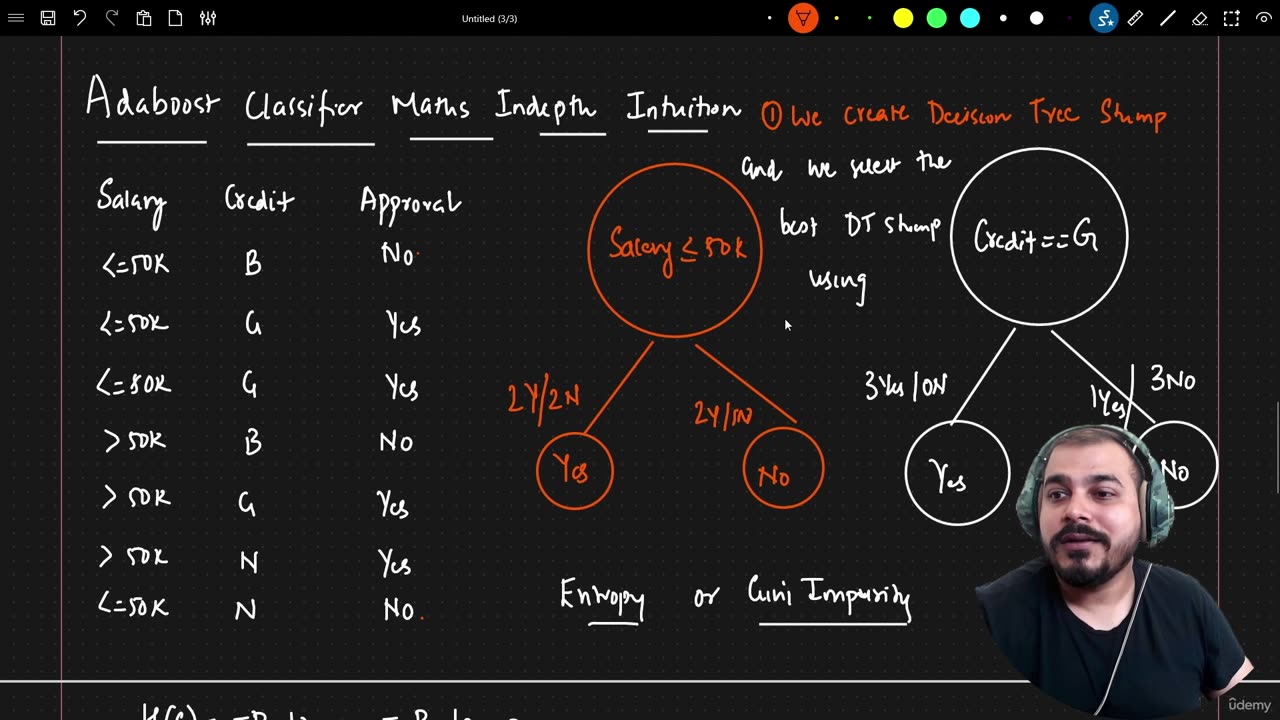 Untitled (3/3)
Adaboost Classifier Maths Indepth Intuition
① We Create Decision Tree Stump
and we select the
best DT stump
using
Salary Credit Approval
<=50K B No
<=50K G Yes
<=50K G Yes
>50K B No
>50K G Yes
>50K N Yes
<=50K N No
Salary ≤ 50K
2Y/2N
2Y/1N
Yes
No
Credit==G
3Yes/0N
1Yes
3No
Yes
No
Entropy or Gini Impurity
ûdemy